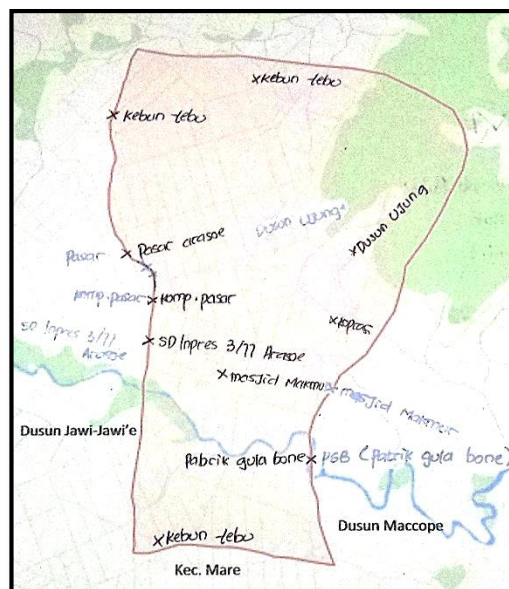 ×kebun tebu
×kebun tebu
Dusun Ujung
×Dusun Ujung
Pasar
×Pasar arasoe
komp. pasar
×komp. pasar
×kopras
SD Inpres 3/77
Arasoe
×SD Inpres 3/77 Arasoe
×masjid Makmur
×masjid Makmur
Dusun Jawi-Jawi'e
Pabrik gula bone
×PGB (Pabrik gula bone)
Dusun Maccope
×kebun tebu
Kec. Mare